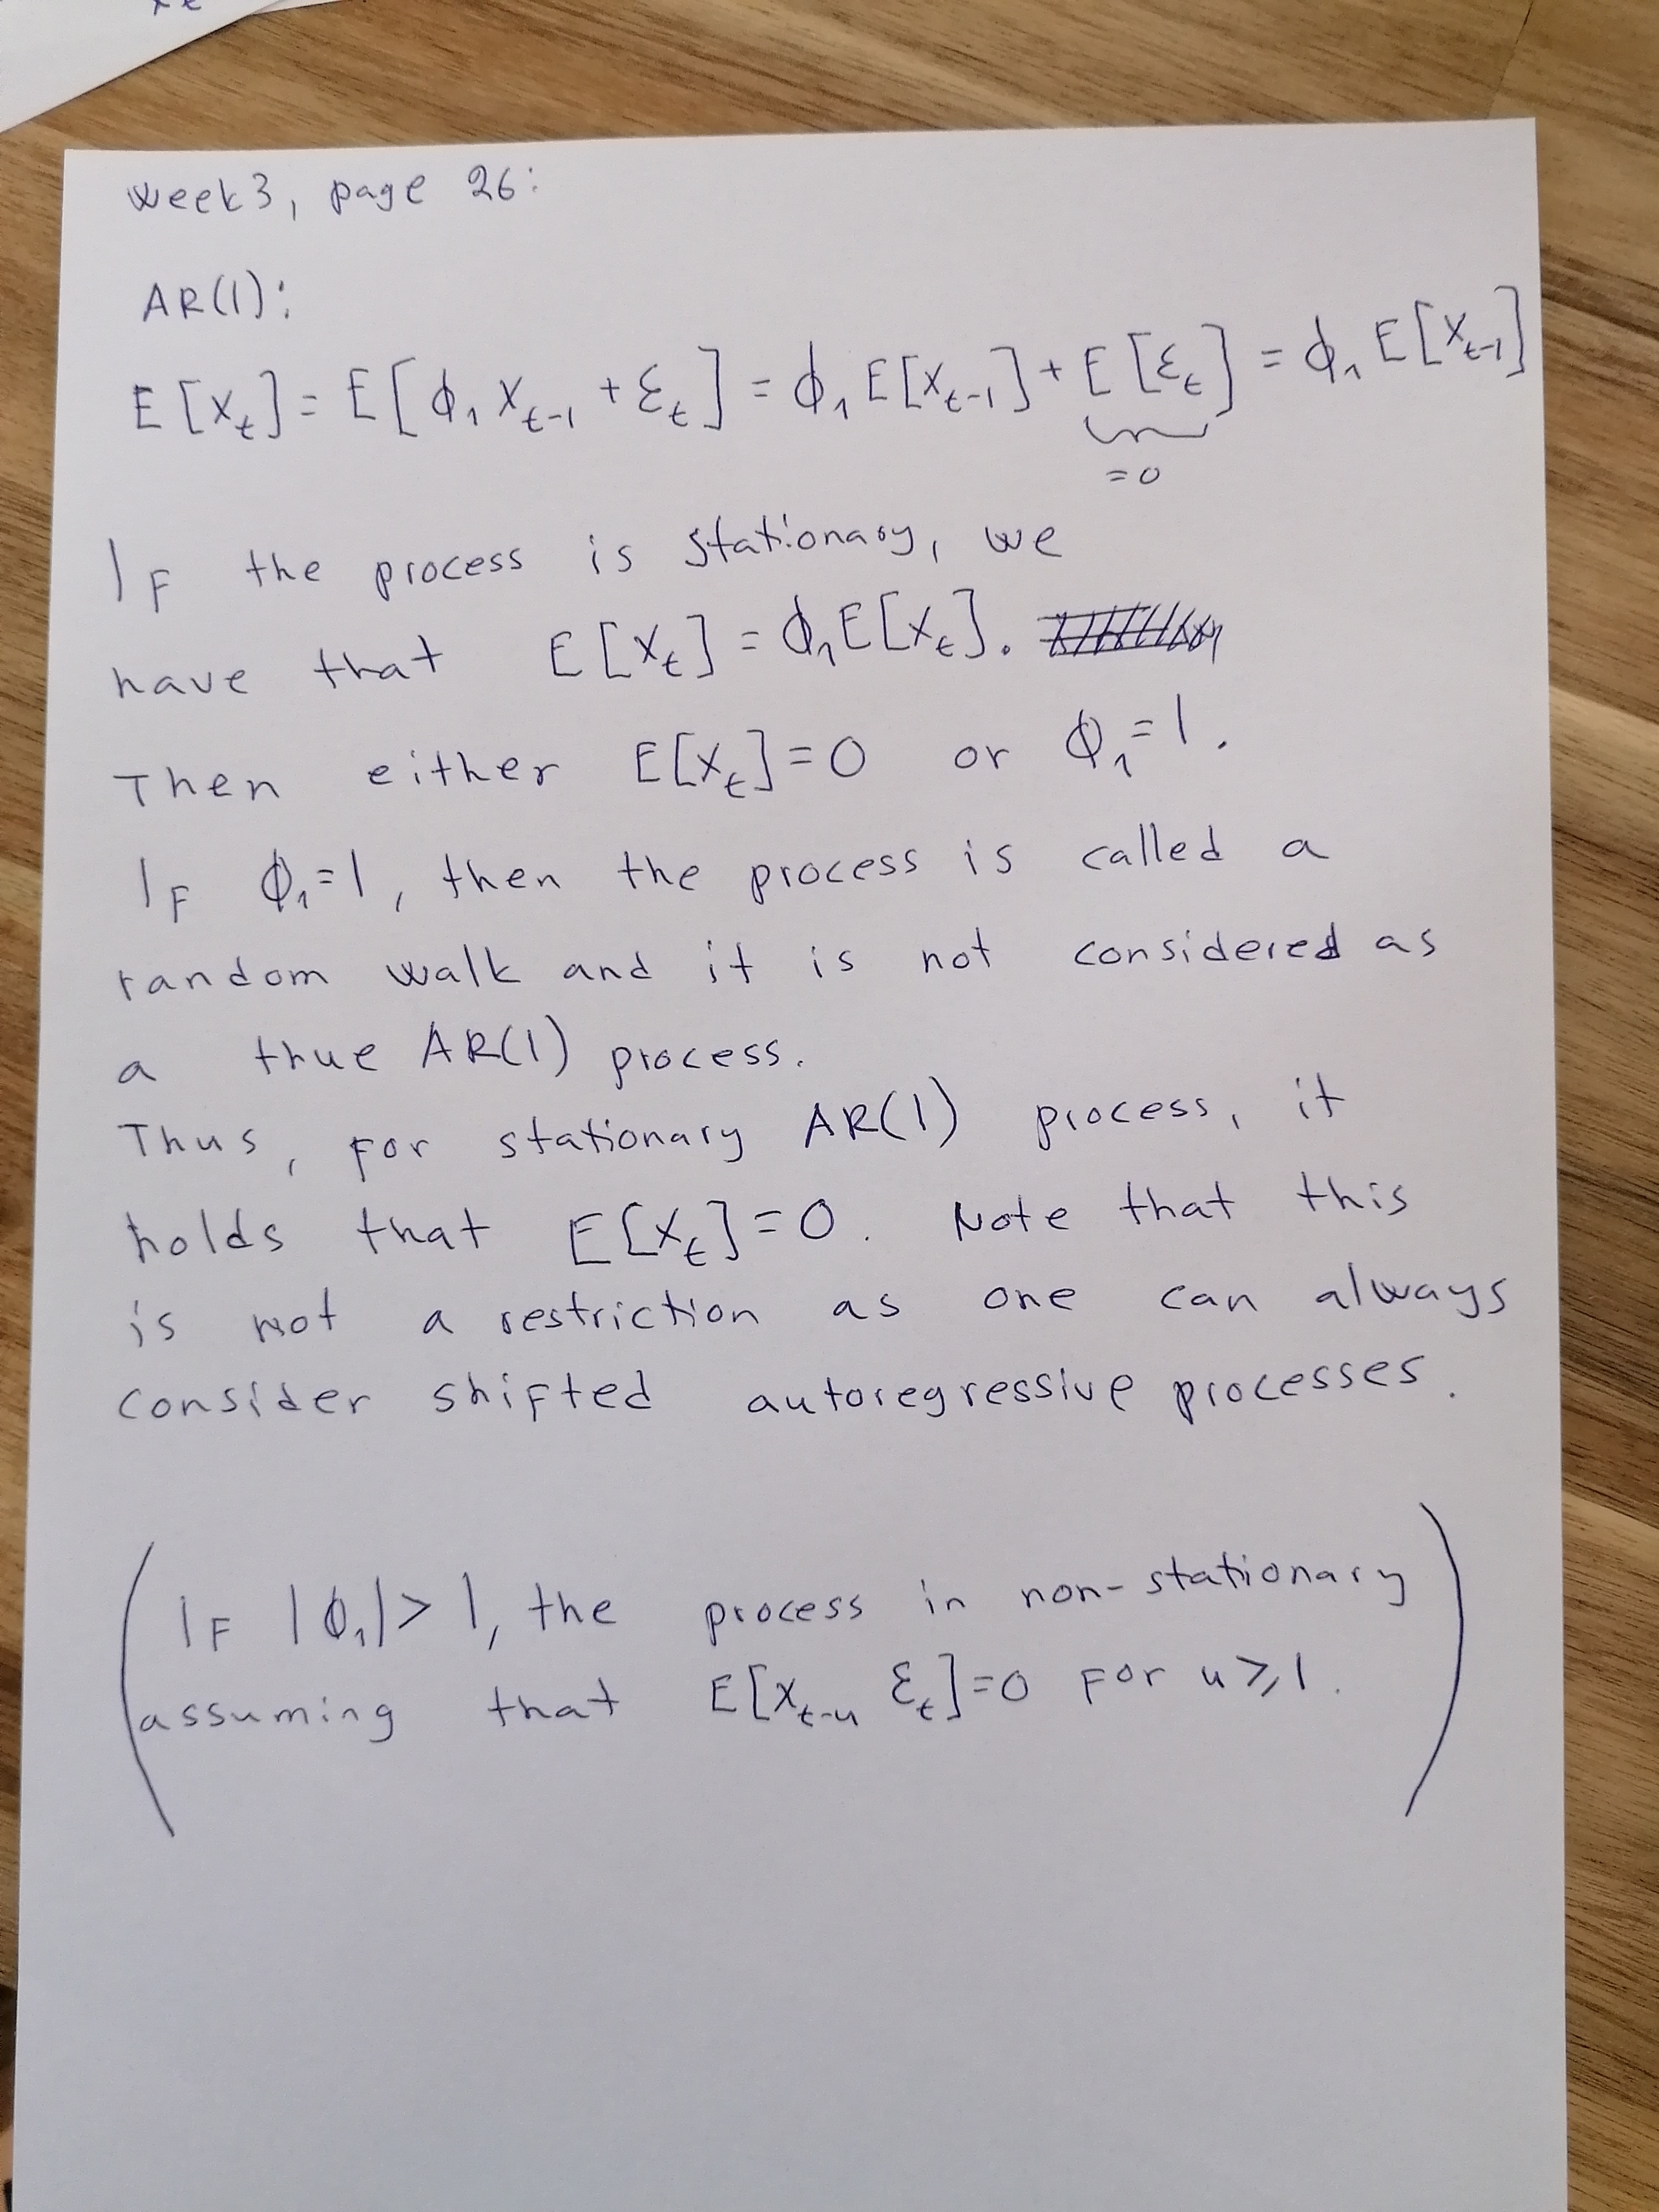 week3, page 26:
AR(1):
E[x_t] = E[ϕ₁ x_{t-1} + ε_t] = ϕ₁ E[x_{t-1}] + E[ε_t] = ϕ₁ E[x_{t-1}]
=0
If the process is stationary, we
have that E[x_t] = ϕ₁E[x_t].
Then either E[x_t]=0 or ϕ₁=1.
If ϕ₁=1, then the process is called a
random walk and it is not considered as
a thue AR(1) process.
Thus, for stationary AR(1) process, it
holds that E[x_t]=0. Note that this
is not a restriction as one can always
consider shifted autoregressive processes.
(If |ϕ₁|>1, the process in non-stationary
assuming that E[x_{t-u} ε_t]=0 for u≥1.)